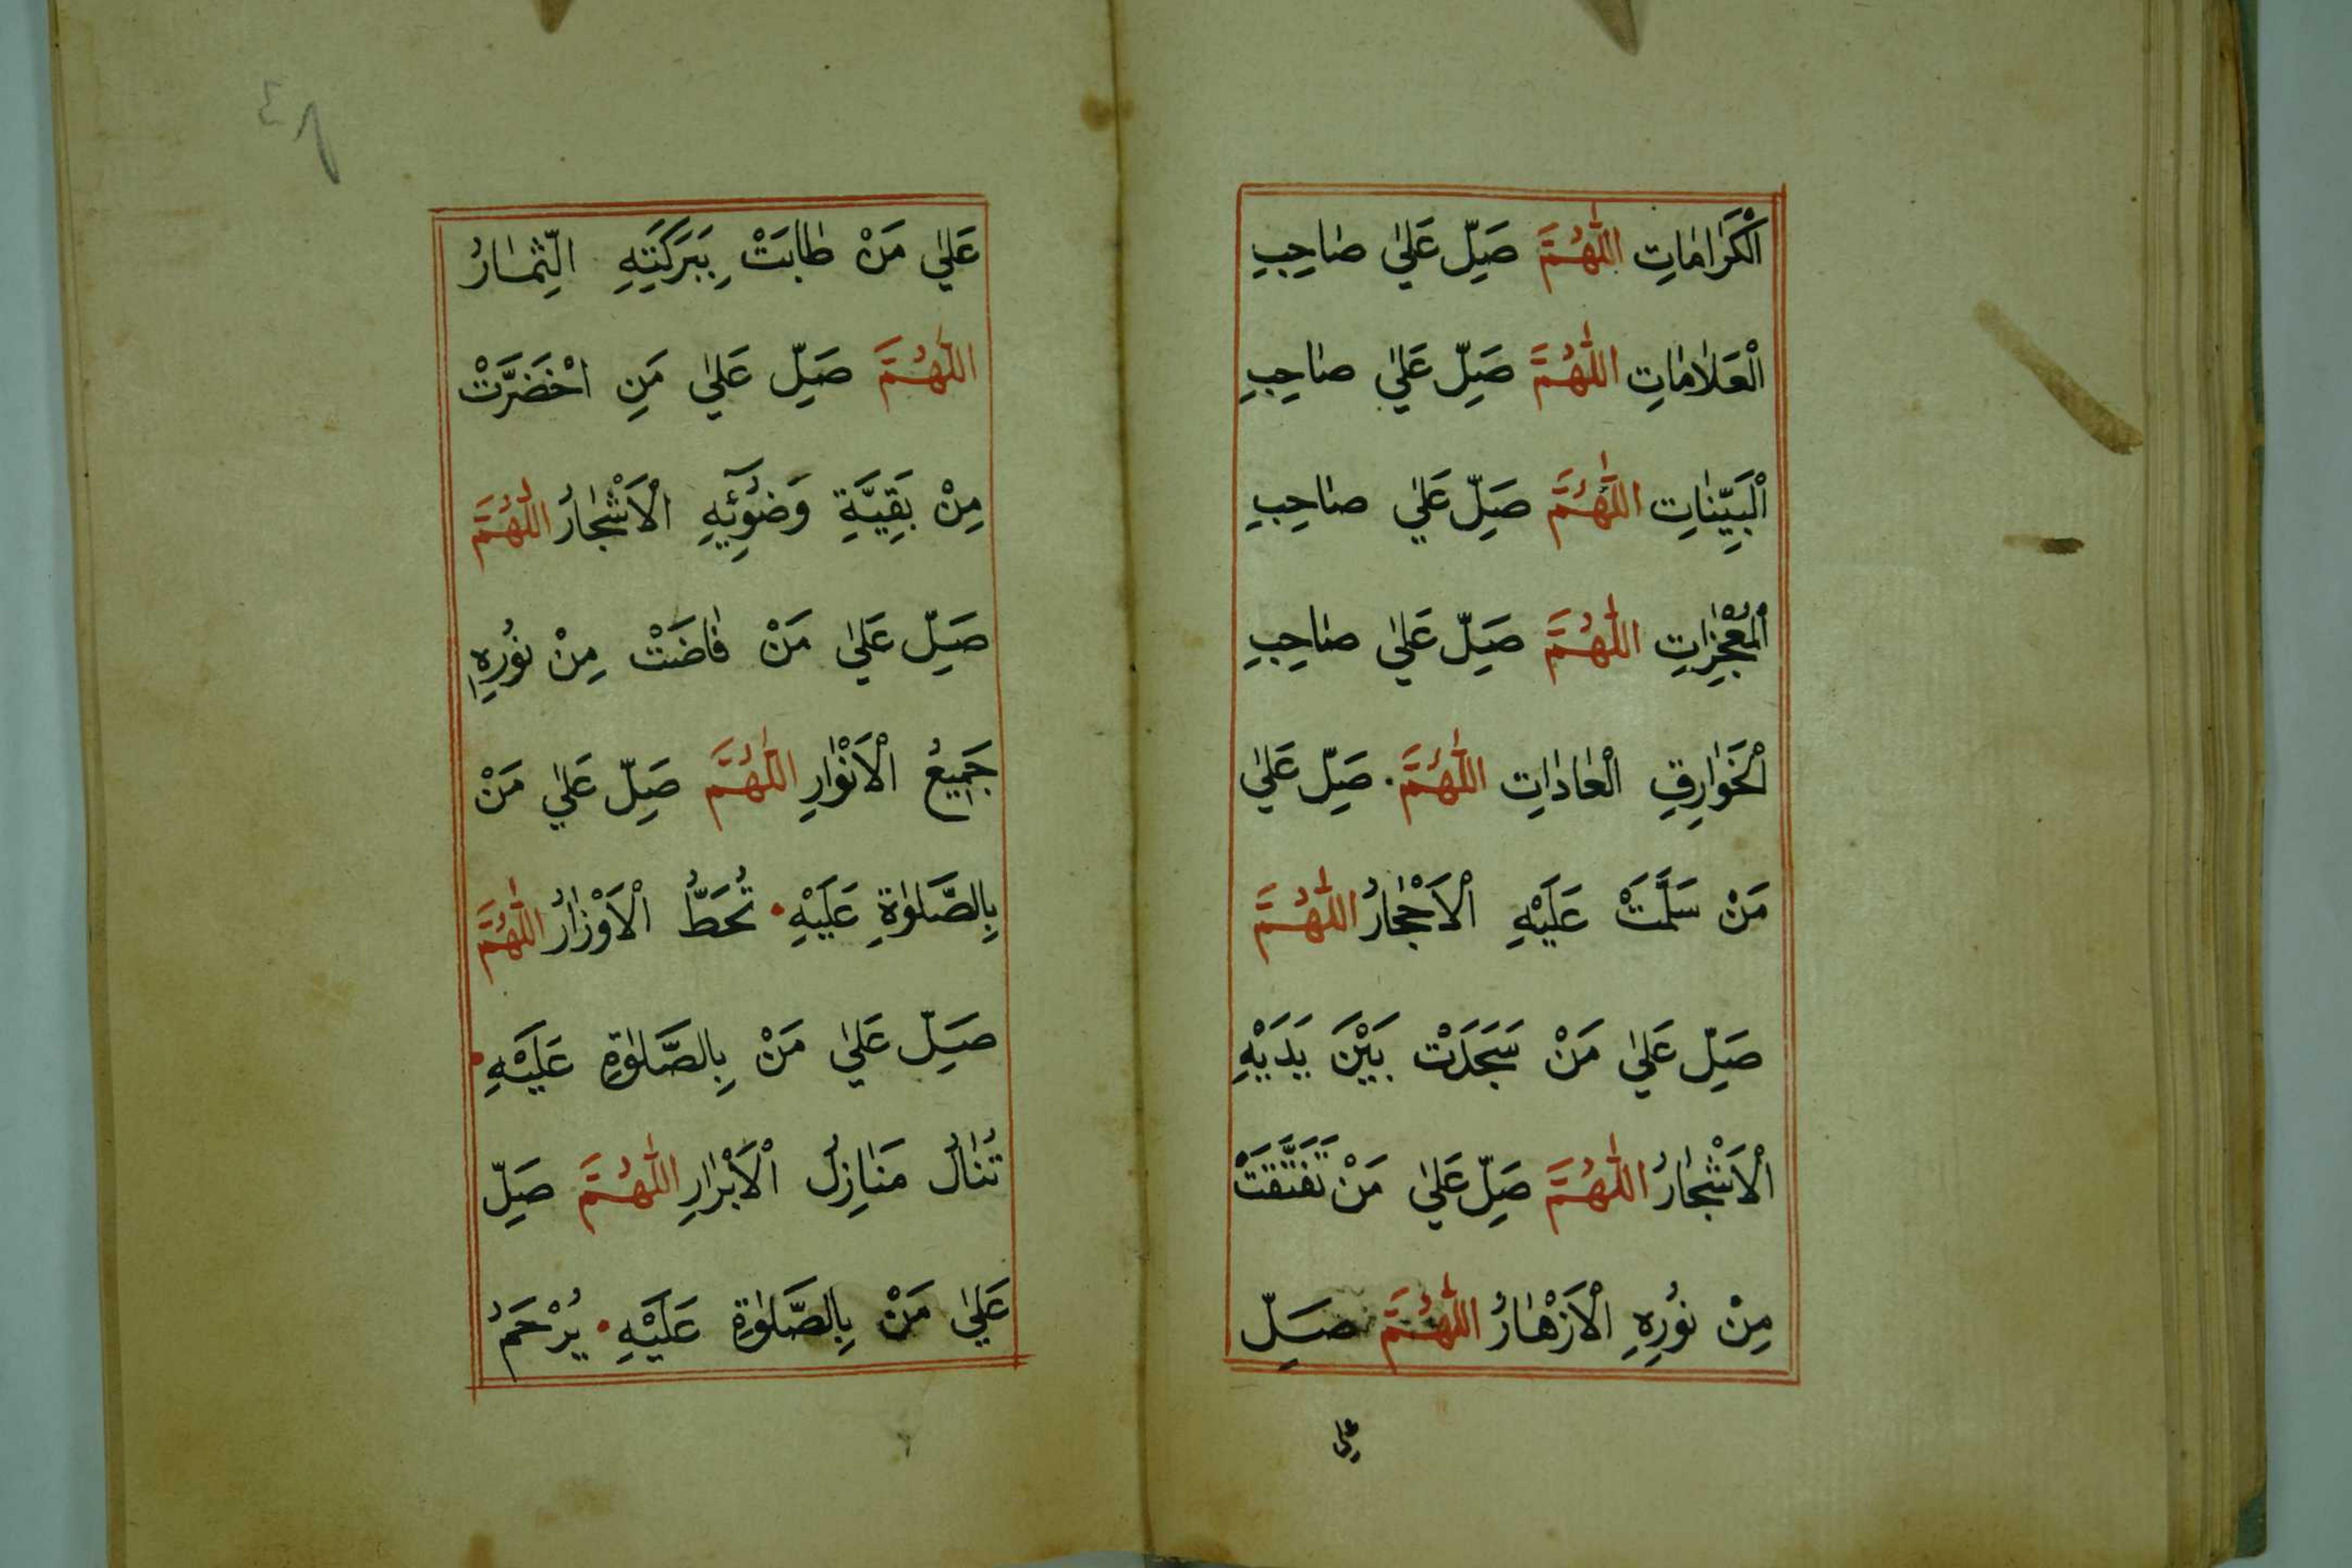 الْكَرَامَاتِ اللّٰهُمَّ صَلِّ عَلٰي صَاحِبِ
الْعَلَامَاتِ اللّٰهُمَّ صَلِّ عَلٰي صَاحِبِ
الْبَيِّنَاتِ اللّٰهُمَّ صَلِّ عَلٰي صَاحِبِ
الْمُعْجِزَاتِ اللّٰهُمَّ صَلِّ عَلٰي صَاحِبِ
الْخَوَارِقِ الْعَادَاتِ اللّٰهُمَّ صَلِّ عَلٰي
مَنْ سَلَّمَتْ عَلَيْهِ الْاَحْجَارُ اللّٰهُمَّ
صَلِّ عَلٰي مَنْ سَجَدَتْ بَيْنَ يَدَيْهِ
الْاَشْجَارُ اللّٰهُمَّ صَلِّ عَلٰي مَنْ تَفَتَّقَتْ
مِنْ نُورِهِ الْاَزْهَارُ اللّٰهُمَّ صَلِّ
علي
٤٨
عَلٰي مَنْ طَابَتْ بِبَرَكَتِهِ الثِّمَارُ
اللّٰهُمَّ صَلِّ عَلٰي مَنِ اخْضَرَّتْ
مِنْ بَقِيَّةِ وَضُوْئِهِ الْاَشْجَارُ اللّٰهُمَّ
صَلِّ عَلٰي مَنْ فَاضَتْ مِنْ نُوْرِهِ
جَمِيْعُ الْاَنْوَارِ اللّٰهُمَّ صَلِّ عَلٰي مَنْ
بِالصَّلٰوةِ عَلَيْهِ تُحَطُّ الْاَوْزَارُ اللّٰهُمَّ
صَلِّ عَلٰي مَنْ بِالصَّلٰوةِ عَلَيْهِ
تُنَالُ مَنَازِلُ الْاَبْرَارِ اللّٰهُمَّ صَلِّ
عَلٰي مَنْ بِالصَّلٰوةِ عَلَيْهِ يُرْحَمُ